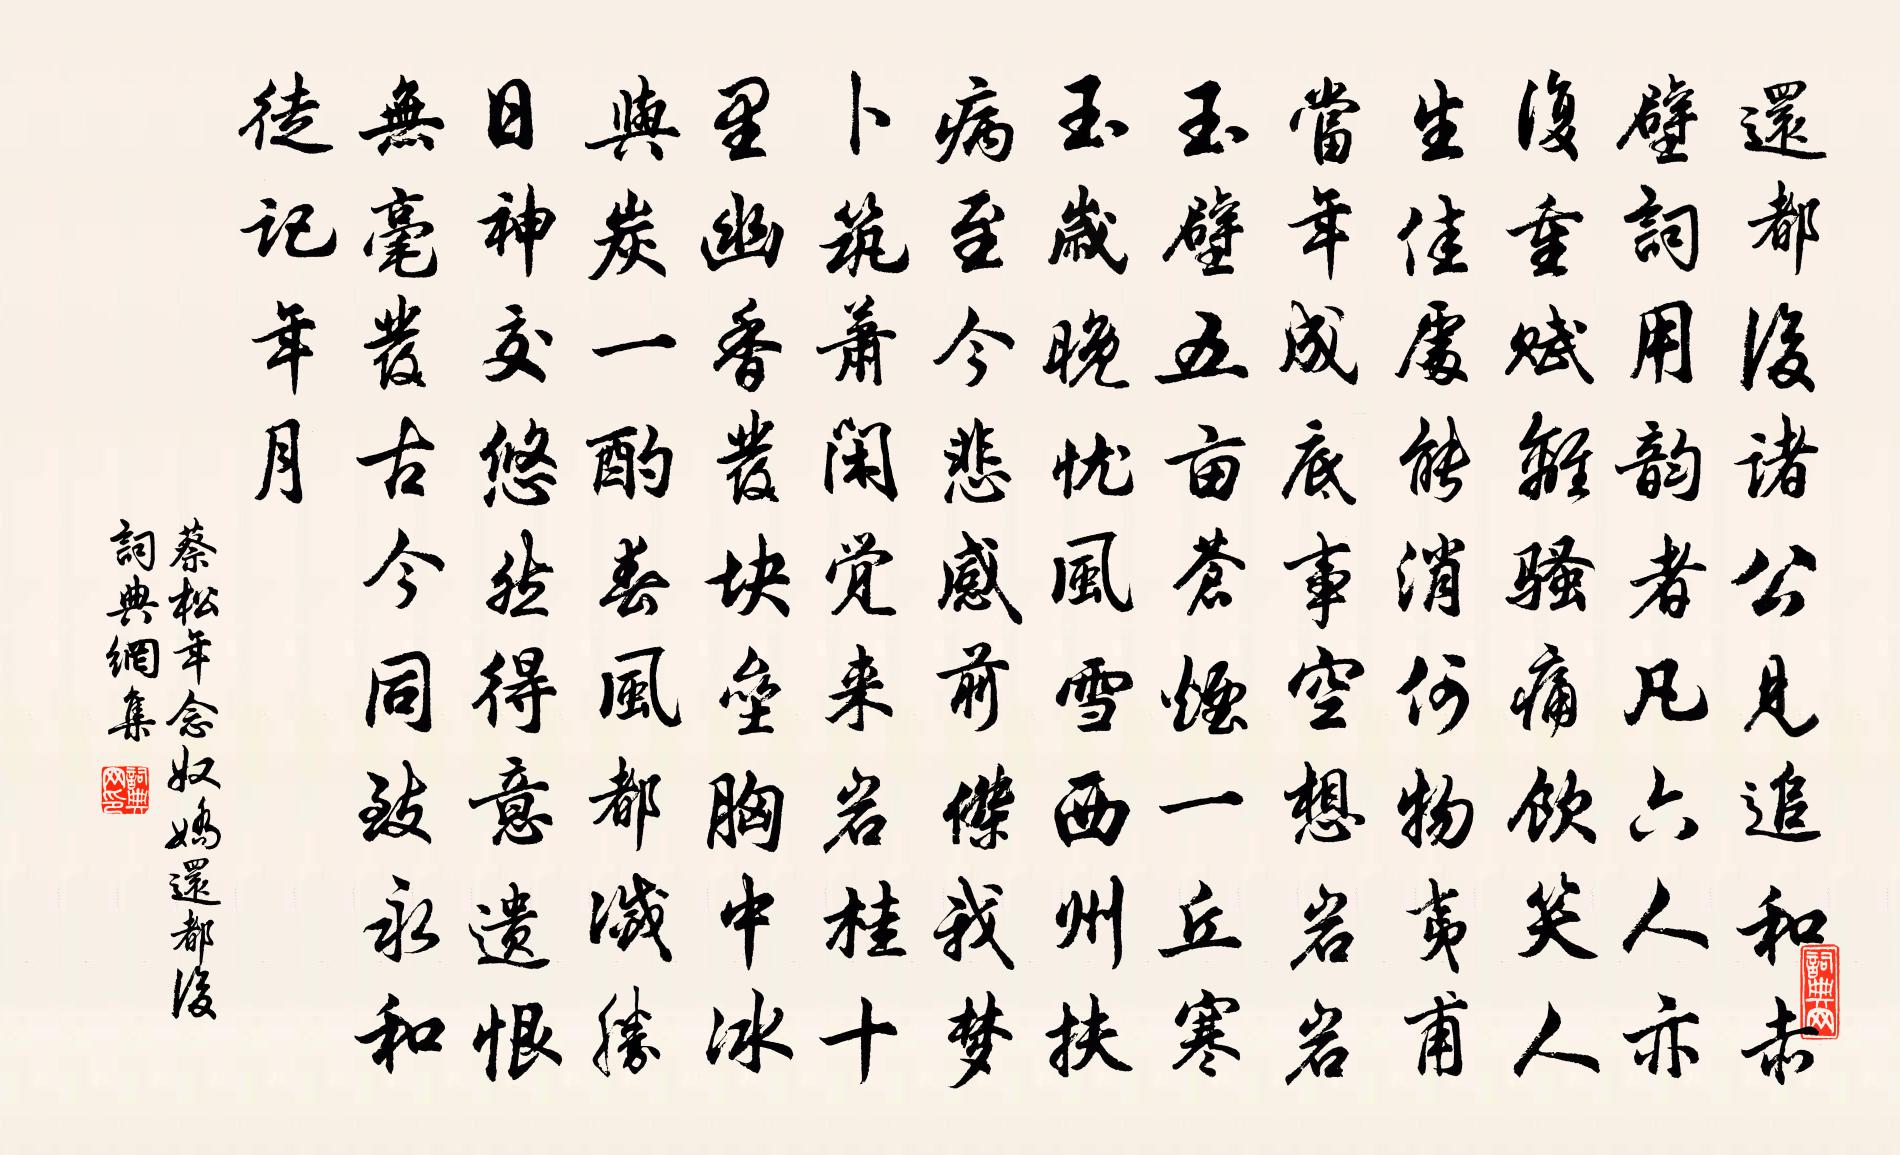 還都後诸公見追和赤
壁詞用韵者凡六人亦
復重赋離騷痛飲笑人
生佳處能消何物夷甫
當年成底事空想岩岩
玉壁五亩蒼煙一丘寒
玉歲晚忧風雪西州扶
病至今悲感前傑我梦
卜筑蕭闲觉来岩桂十
里幽香發块垒胸中冰
與炭一酌春風都滅勝
日神交悠然得意遗恨
無毫發古今同致永和
徒记年月
蔡松年念奴嬌還都後
詞典網集
詞典网
詞典网印